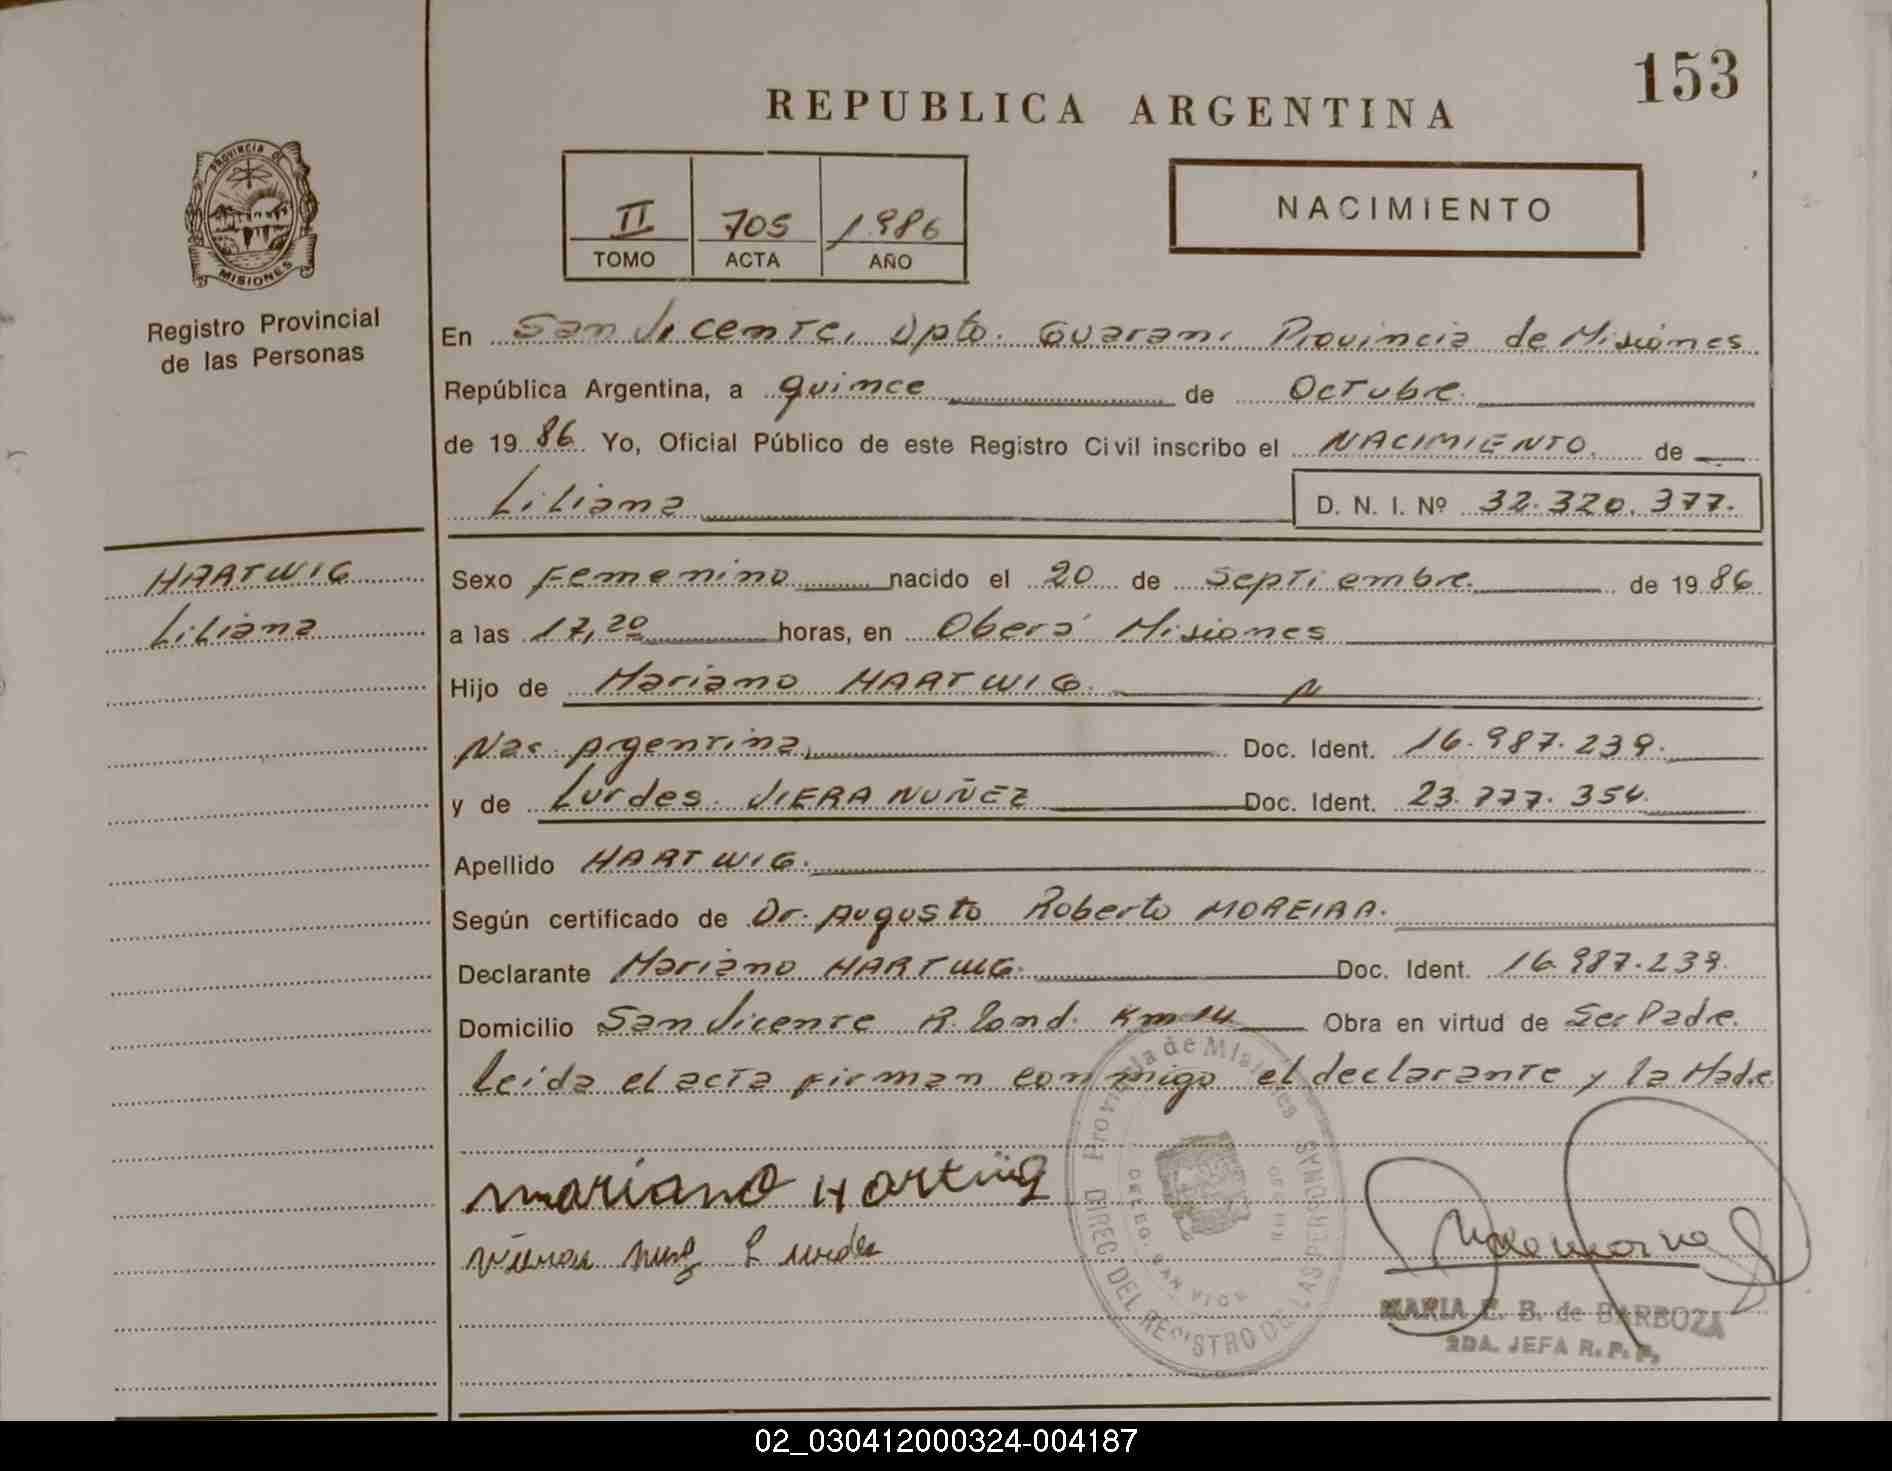 153
REPUBLICA ARGENTINA
PROVINCIA DE
MISIONES
Registro Provincial
de las Personas
II 705 1.986
TOMO ACTA AÑO
NACIMIENTO
En San Vicente, Dpto. Guarani Provincia de Misiones
República Argentina, a quince de Octubre
de 1986 Yo, Oficial Público de este Registro Civil inscribo el NACIMIENTO de
Liliana D. N. I. Nº 32.320.377.
HARTWIG
Liliana
Sexo Femenino nacido el 20 de Septiembre de 1986
a las 17,20 horas, en Oberá Misiones
Hijo de Mariano HARTWIG
Nac. Argentina Doc. Ident. 16.987.239.
y de Lurdes VIERA NUÑEZ Doc. Ident. 23.777.354
Apellido HARTWIG.
Según certificado de Dr. Augusto Roberto MOREIRA.
Declarante Mariano HARTWIG Doc. Ident. 16.987.239.
Domicilio San Vicente R. Rond. Km 14 Obra en virtud de Ser Padre.
leída el acta firman conmigo el declarante y la Madre
Provincia de Misiones
DIREC. DEL REGISTRO DE LAS PERSONAS
mariano Hartwig
Lurdes
MARIA E. B. de BARBOZA
2DA. JEFA R. P. P.
02_030412000324-004187